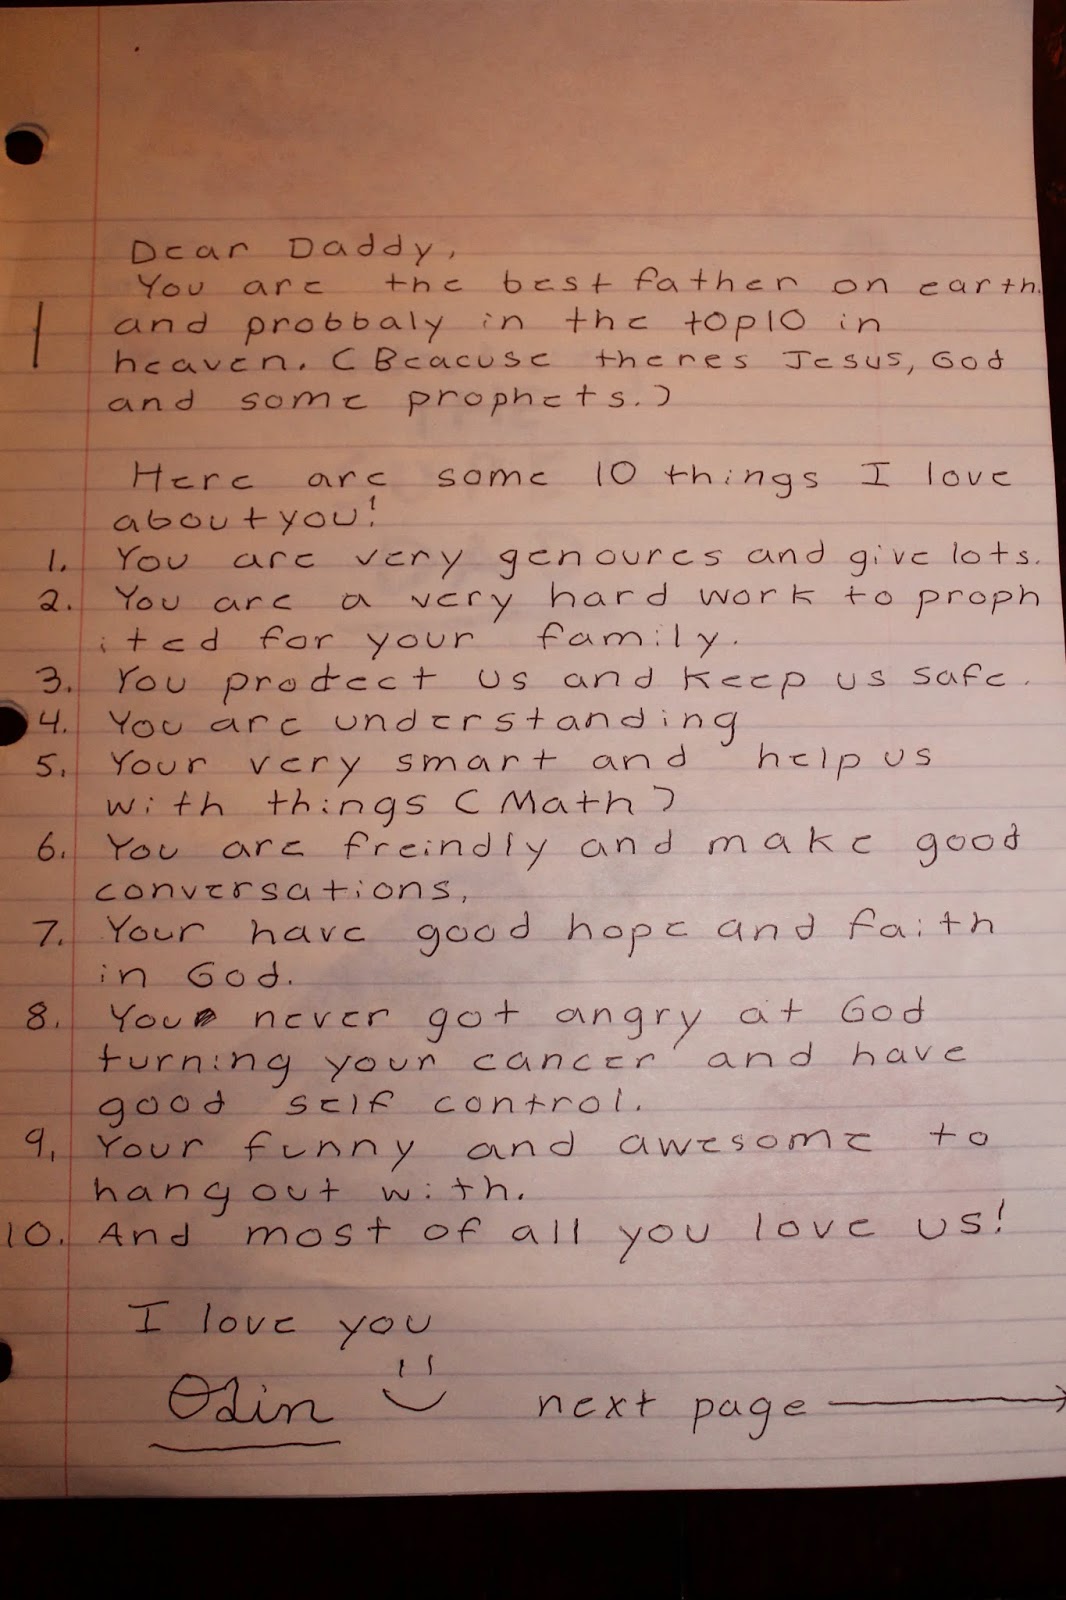 Dear Daddy,
You are the best father on earth.
and probbaly in the top10 in
heaven. (Beacuse theres Jesus, God
and some prophets.)
Here are some 10 things I love
about you!
1. You are very genoures and give lots.
2. You are a very hard work to proph
ited for your family.
3. You protect us and keep us safe.
4. You are understanding
5. Your very smart and help us
with things (Math)
6. You are freindly and make good
conversations,
7. Your have good hope and faith
in God.
8. You never got angry at God
turning your cancer and have
good self control.
9. Your funny and awesome to
hang out with.
10. And most of all you love us!
I love you
Odin next page